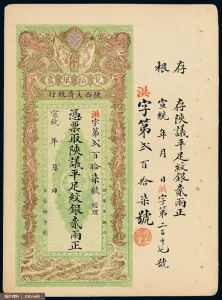 存根
存陝議平足紋銀貳兩正
宣統 年 月 日洪字第二百十七號
洪字第貳百拾柒號
陝西大清銀行
洪字第貳百拾柒號
憑票取陝議平足紋銀貳兩正
宣統 年 月 日